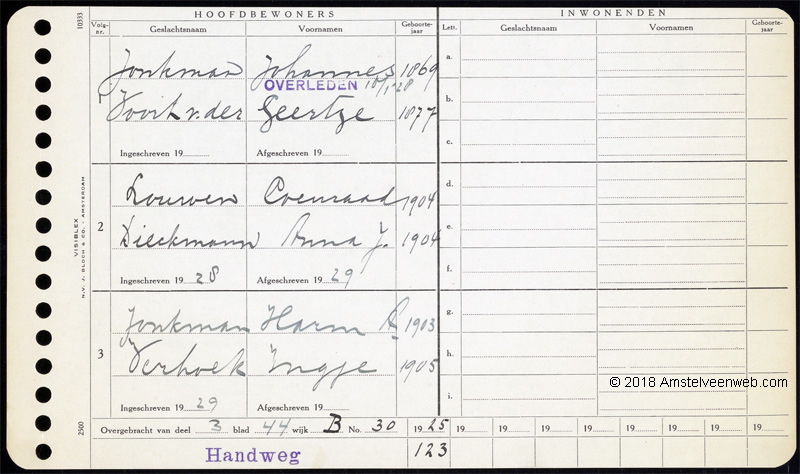 HOOFDBEWONERS
INWONENDEN
Volg-nr.
Geslachtsnaam
Voornamen
Geboorte-jaar
Lett.
Geslachtsnaam
Voornamen
Geboorte-jaar
10333
Jonkman Johannes 1869
OVERLEDEN 18/1-28
Voort v. der Geertje 1877
Ingeschreven 19
Afgeschreven 19
2
Louwen Coenraad 1904
Dieckmann Anna J. 1904
Ingeschreven 19 28
Afgeschreven 19 29
3
Jonkman Harm A 1903
Verhoek Ingje 1905
Ingeschreven 19 29
Afgeschreven 19
a.
b.
c.
d.
e.
f.
g.
h.
i.
VISIBLEX
N.V. J. BLOCH & CO. - AMSTERDAM
Z500
© 2018 Amstelveenweb.com
Overgebracht van deel 3 blad 44 wijk B No. 30 19 25 19 19 19 19 19 19 19 19
Handweg
123